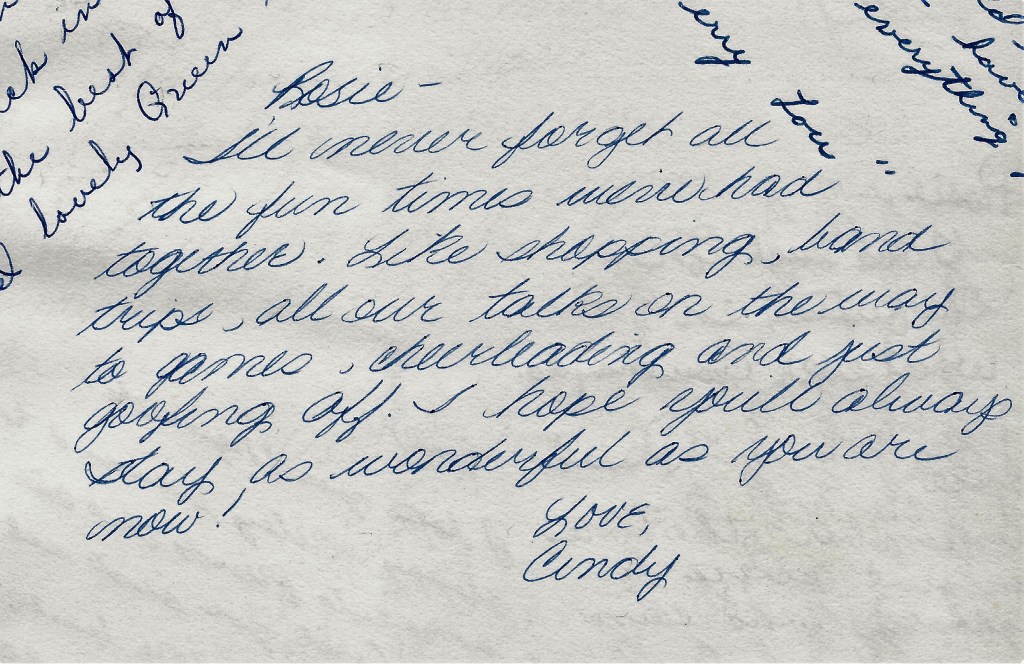 ck in
the best of
lovely Queen
erry
everything
have
Lou
Rosie -
I'll never forget all
the fun times we've had
together. Like shopping, band
trips, all our talks on the way
to games, cheerleading and just
goofing off. I hope you'll always
stay as wonderful as you are
now!
Love,
Cindy